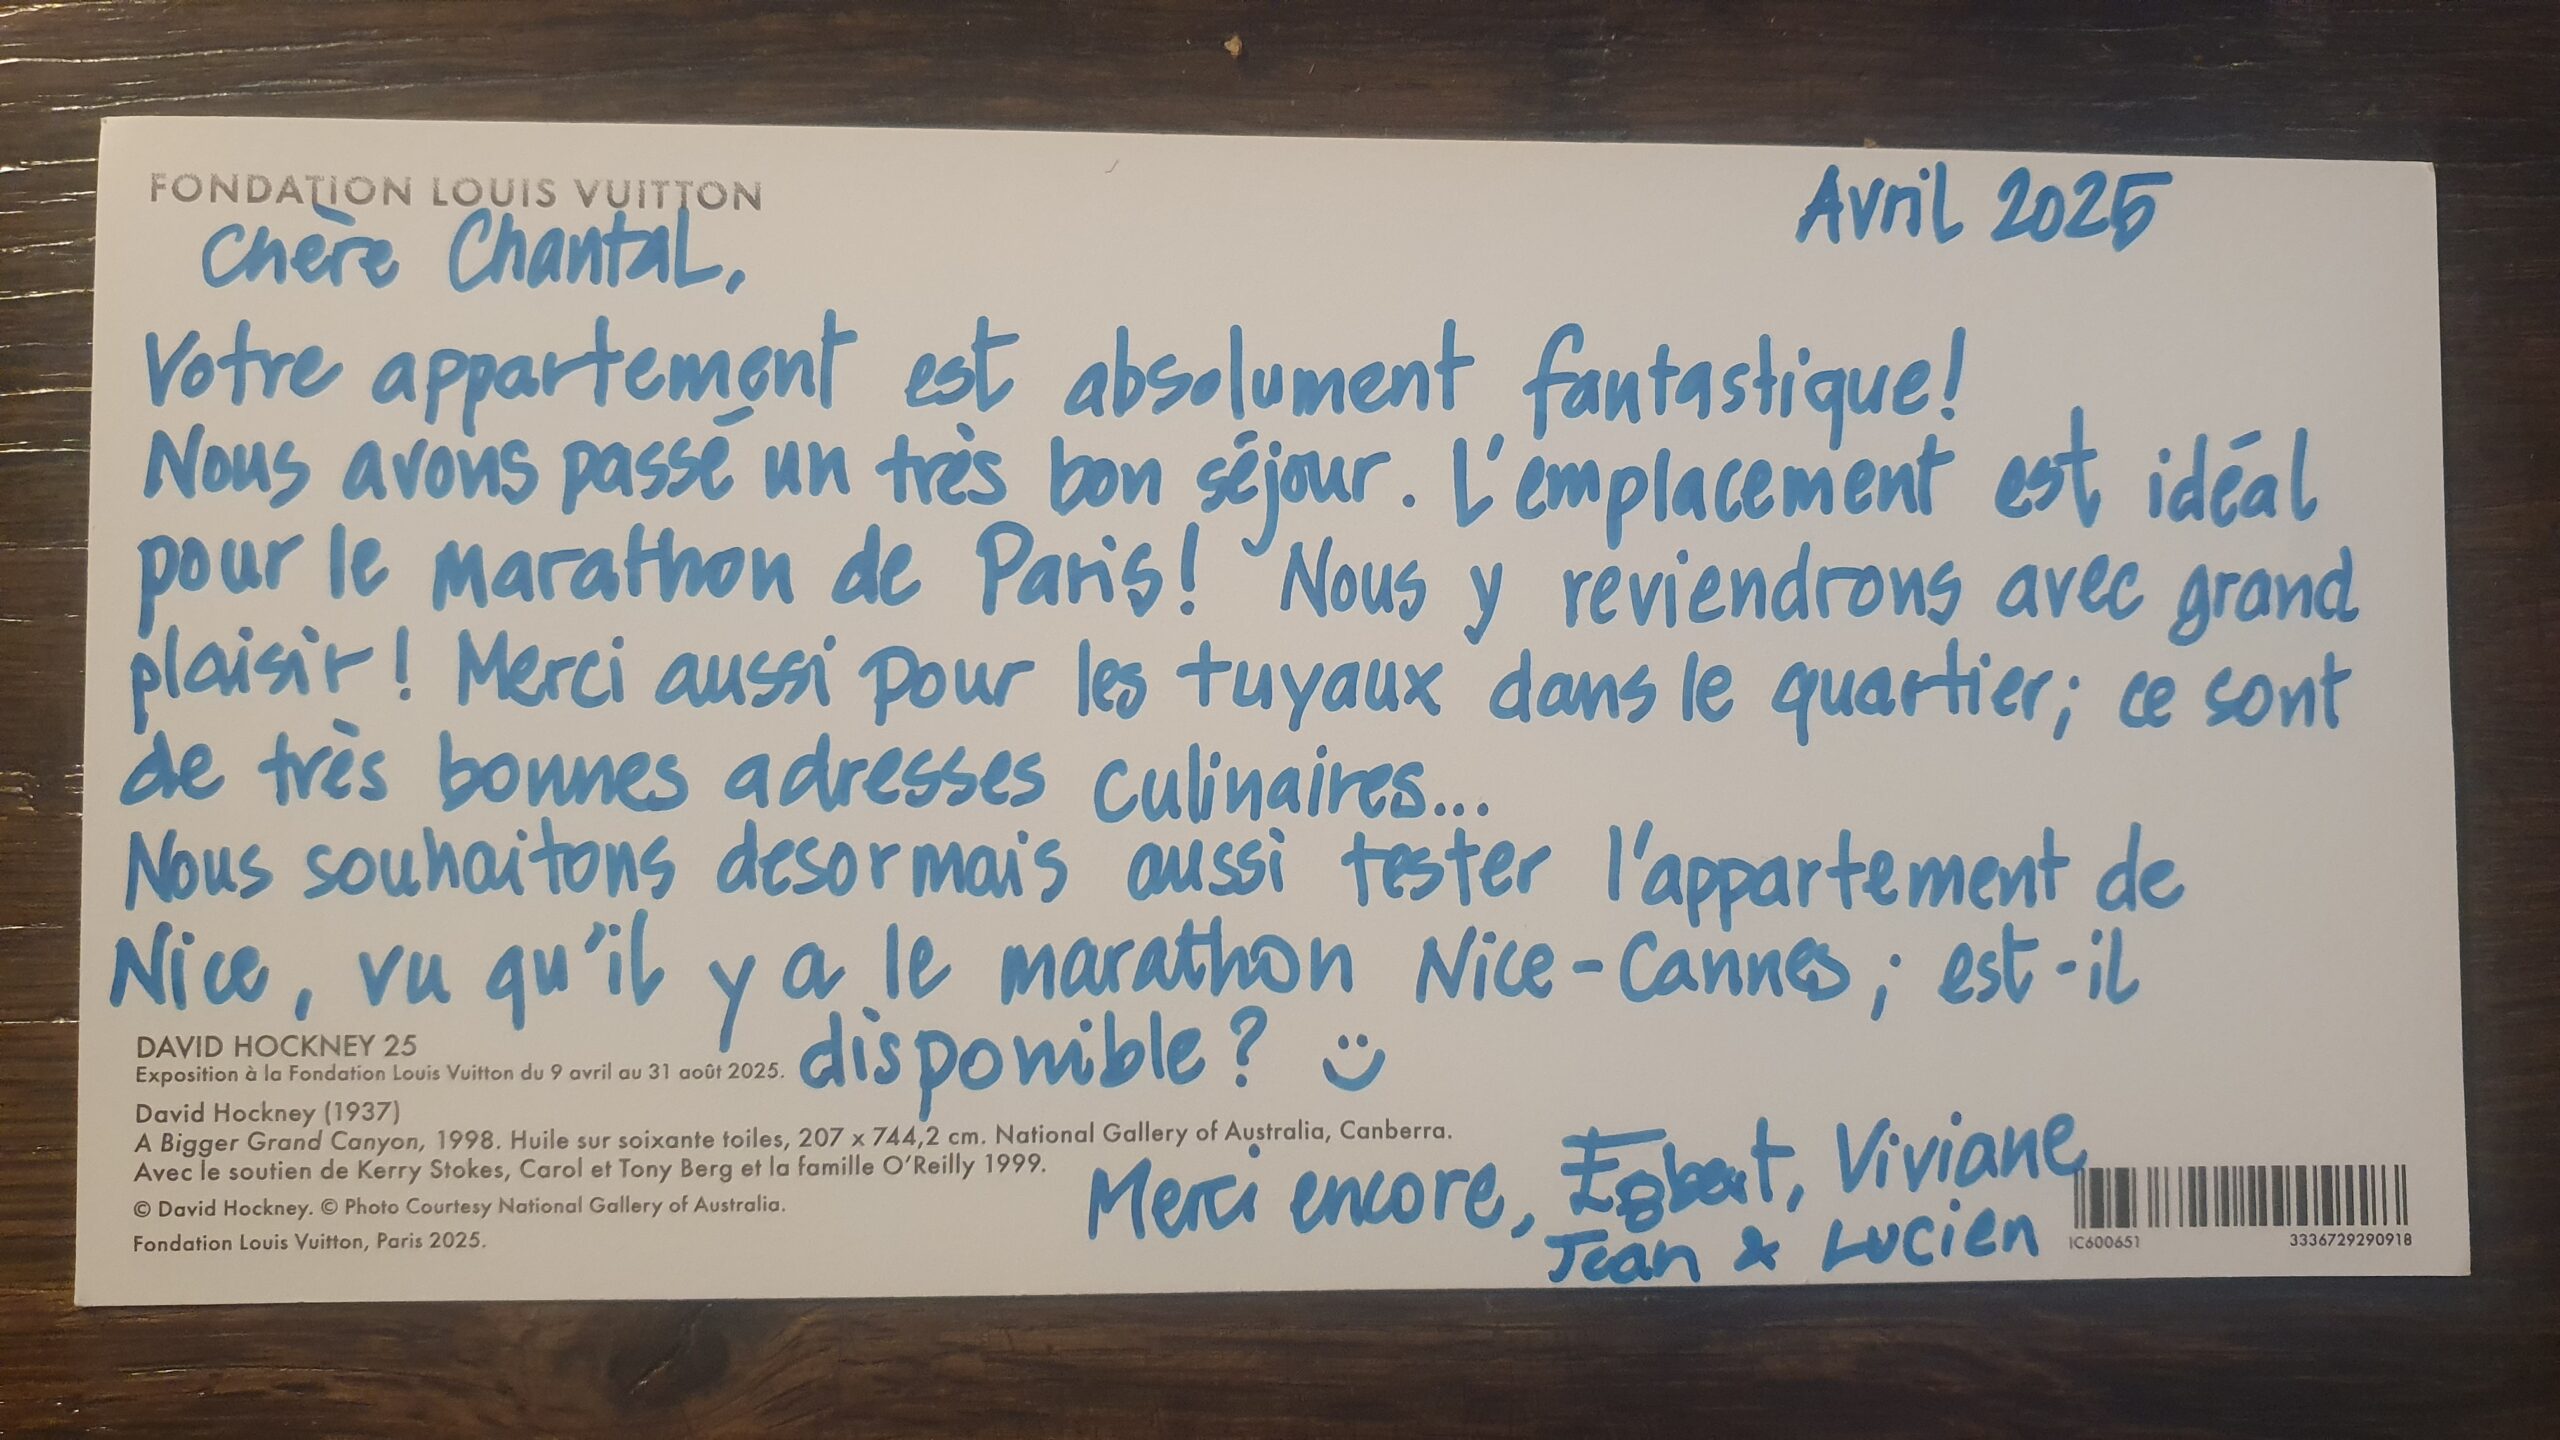 FONDATION LOUIS VUITTON
Avril 2025
Chère Chantal,
Votre appartement est absolument fantastique!
Nous avons passé un très bon séjour. L'emplacement est idéal
pour le marathon de Paris! Nous y reviendrons avec grand
plaisir! Merci aussi pour les tuyaux dans le quartier; ce sont
de très bonnes adresses culinaires...
Nous souhaitons desormais aussi tester l'appartement de
Nice, vu qu'il y a le marathon Nice-Cannes; est-il
disponible? :)
DAVID HOCKNEY 25
Exposition à la Fondation Louis Vuitton du 9 avril au 31 août 2025.
David Hockney (1937)
A Bigger Grand Canyon, 1998. Huile sur soixante toiles, 207 x 744,2 cm. National Gallery of Australia, Canberra.
Avec le soutien de Kerry Stokes, Carol et Tony Berg et la famille O'Reilly 1999.
© David Hockney. © Photo Courtesy National Gallery of Australia.
Fondation Louis Vuitton, Paris 2025.
Merci encore, Egbert, Viviane
Jean & Lucien
IC600651
3336729290918